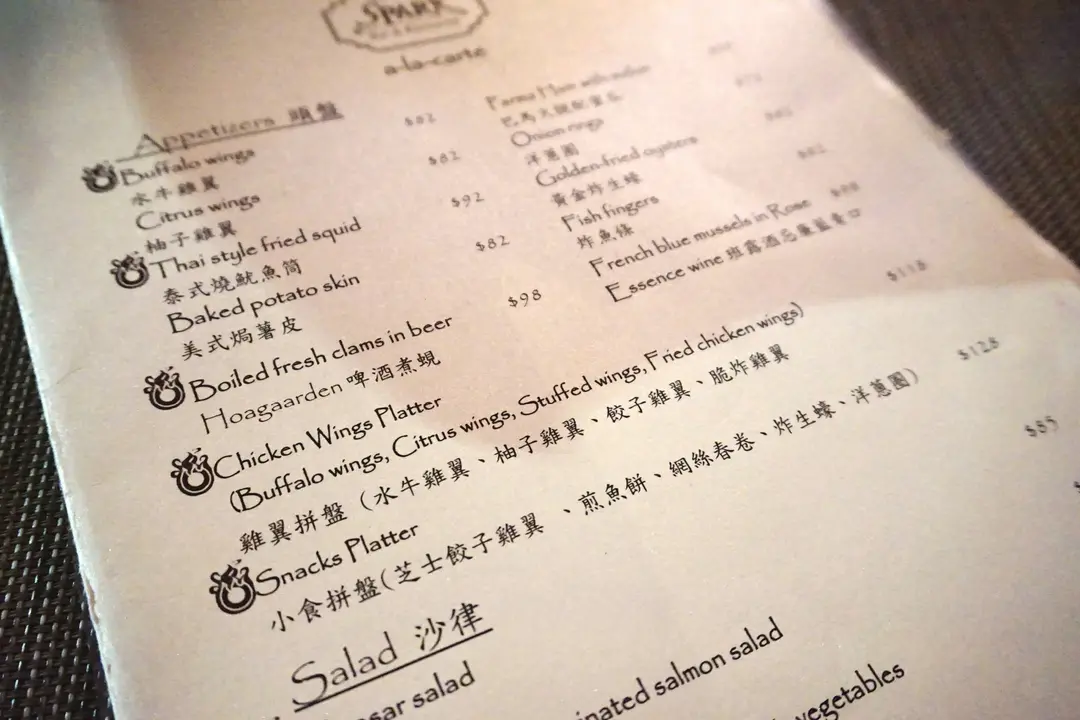 SPARK
a-la-carte
Appetizers 頭盤
Buffalo wings $82
水牛雞翼
Citrus wings $82
柚子雞翼
Thai style fried squid $92
泰式燒魷魚筒
Baked potato skin $82
美式焗薯皮
Boiled fresh clams in beer $98
Hoagaarden 啤酒煮蜆
Parma Ham with melon
巴馬火腿配蜜瓜
Onion rings
洋蔥圈
Golden-fried oysters
黃金炸生蠔
Fish fingers
炸魚條
French blue mussels in Rose
Essence wine 班露酒忌廉藍青口
Chicken Wings Platter $118
(Buffalo wings, Citrus wings, Stuffed wings, Fried chicken wings)
雞翼拼盤 (水牛雞翼、柚子雞翼、餃子雞翼、脆炸雞翼
Snacks Platter $128
小食拼盤(芝士餃子雞翼 、煎魚餅、網絲春卷、炸生蠔、洋蔥圈)
Salad 沙律
salad $85
salmon salad
vegetables